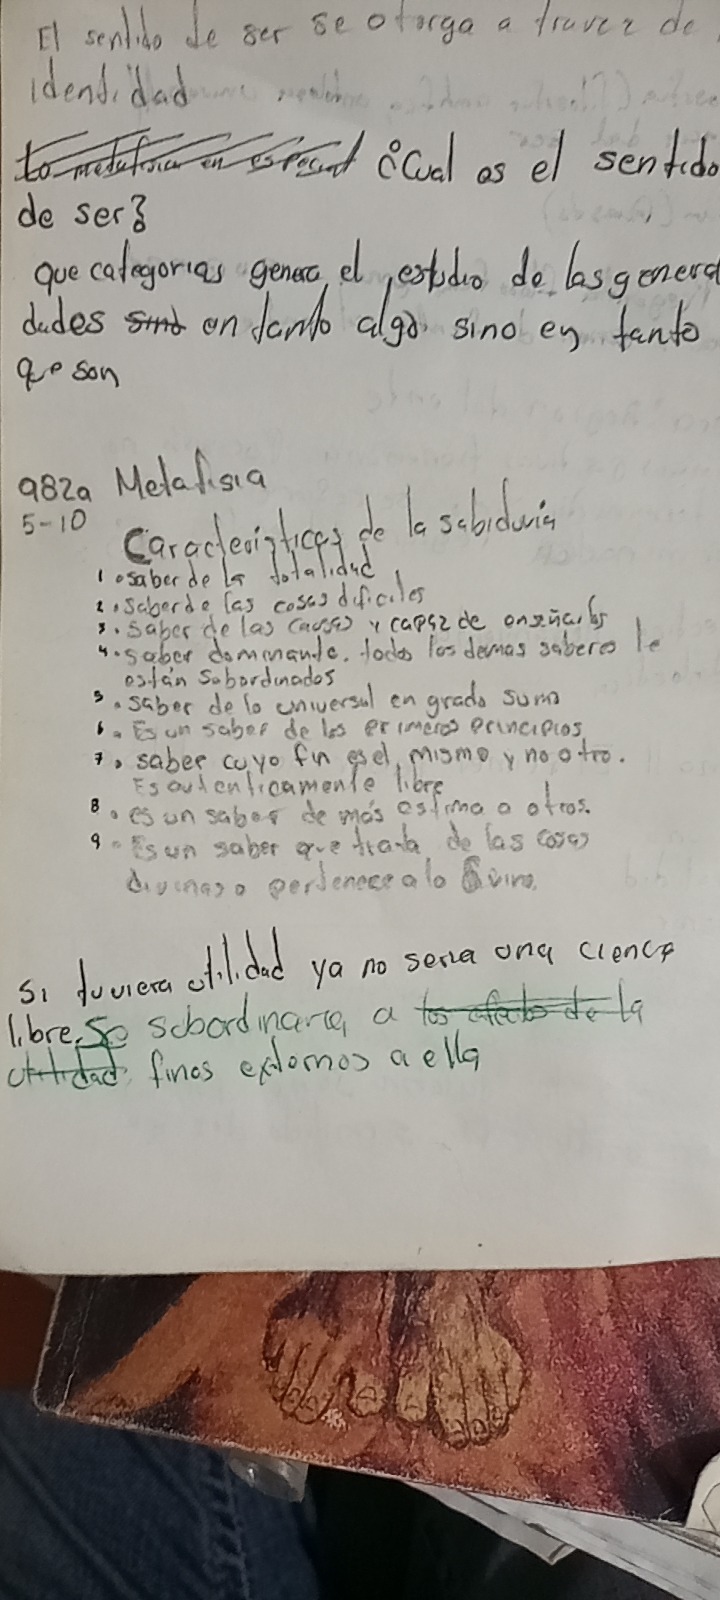 El sentido de ser se otorga a travez de
identidad
to metafisica en especial ¿Cual es el sentido
de ser?
que categorias genera el estudio de las genera
dades sino en tanto algo sino en tanto
que son
982a Metafisia
5-10
Caracteoisticas de la sabiduria
1. saber de la totalidad
2. saber de las cosas dificiles
3. saber de las causas y capaz de enseñarlas
4. saber dominante. todos los demas saberes le
están subordinados
5. saber de lo universal en grado sumo
6. Es un saber de los primeros principios
7. saber cuyo fin es el mismo y no otro.
Es autenticamente libre
8. es un saber de más estima a otros.
9. Es un saber que trata de las cosas
divinas o pertenece a lo divino.
Si tuviera utilidad ya no seria una ciencia
libre. Se subordinaria a los efectos de la
utilidad fines externos a ella